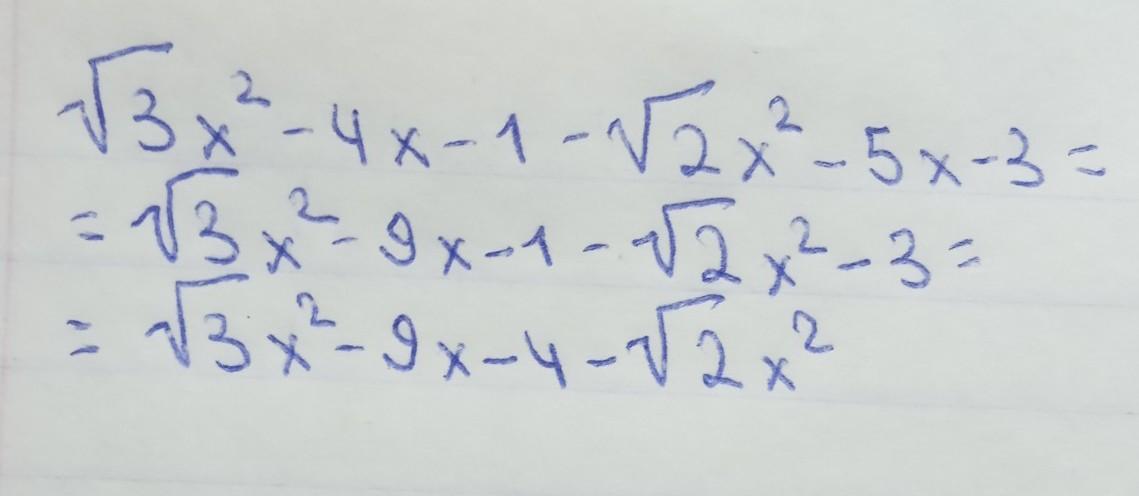 √3x² - 4x - 1 - √2x² - 5x - 3 =
= √3x² - 9x - 1 - √2x² - 3 =
= √3x² - 9x - 4 - √2x²